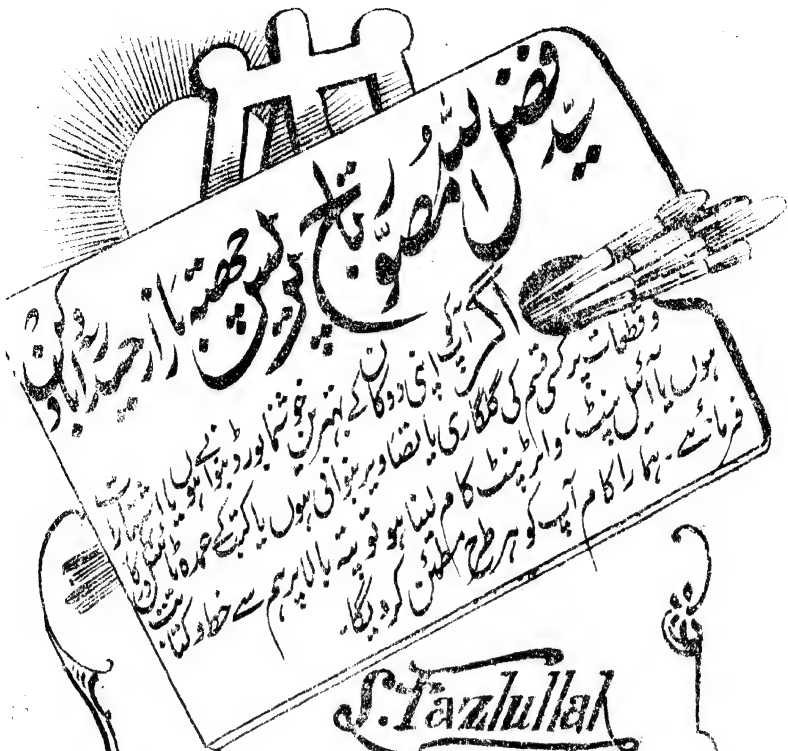 سید فضل اللہ مصوّر تاج پریس چھتہ بازار حیدرآباد دکن
اگر آپکو اپنی دوکان کے بہترین خوشنما بورڈ بنوانا ہو یا اشتہارات
و قطعات پر کسی قسم کی گلکاری یا تصاویر بنوانی ہوں یا کتب کے عمدہ ٹائٹل بنوانا
ہوں یا آئیل پنٹ، واٹر پنٹ کا کام لینا ہو تو پتہ بالا پر ہم سے خط و کتابت
فرمائے۔ ہمارا کام آپ کو ہر طرح مطمئن کردیگا۔
S. Fazlullah